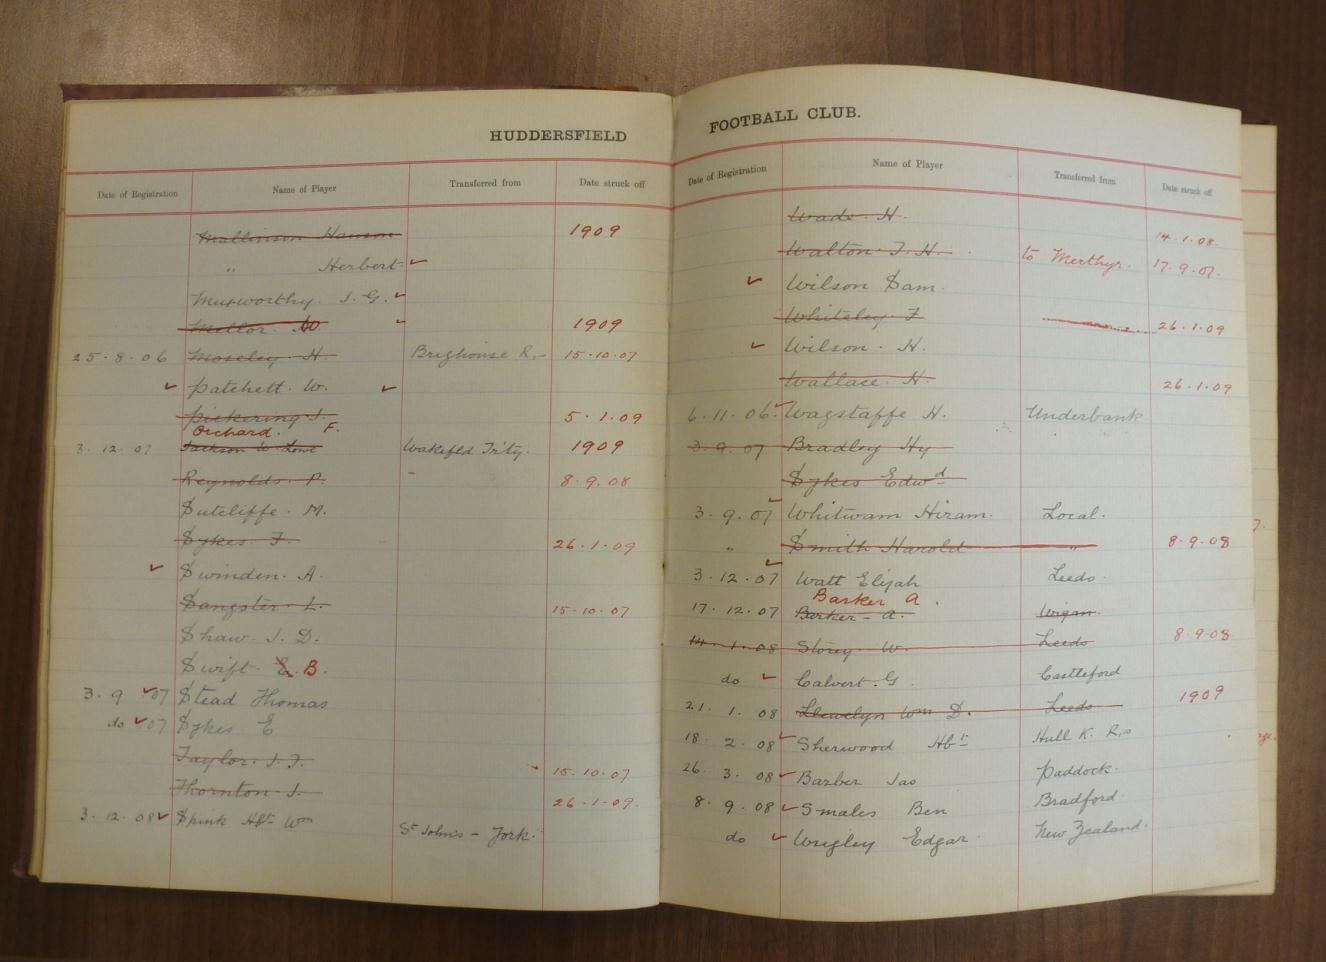 HUDDERSFIELD
Date of Registration Name of Player Transferred from Date struck off
Mallinson Hanson 1909
" Herbert
Musworthy. J. G.
Mellor. W. 1909
25-8-06 Moseley. H. Brighouse R. 15-10-07
Patchett. W.
Pickering J. 5.1.09
Orchard. F.
3.12.07 Jackson W. Lowe Wakefld Tr'ty. 1909
Reynolds. P. 8.9.08
Sutcliffe. M.
Sykes. F. 26.1.09
Swinden. A.
Sangster. L. 15-10-07
Shaw. J. D.
Swift E. B.
3.9 07 Stead Thomas
do 07 Sykes E
Taylor. J. F. 15.10.07
Thornton. J. 26-1-09.
3.12.08 Spink Hbt. Wm St John's - York.
FOOTBALL CLUB.
Date of Registration Name of Player Transferred from Date struck off
Wade. H. 14.1.08.
Walton. J. H. to Merthyr. 17.9.07.
Wilson Sam.
Whiteley F 26.1.09
Wilson. H.
Wallace. H. 26.1.09
6.11.06. Wagstaffe H. Underbank
3.9.07 Bradley Hy
Sykes Edwd
3.9.07 Whitwam Hiram. Local.
" Smith Harold " 8.9.08
3.12.07 Watt Elijah Leeds.
Barker A.
17.12.07 Barker - A. Wigan.
14.1.08 Storey. W. Leeds 8-9-08
do Calvert. G. Castleford
21.1.08 Llewelyn Wm D. Leeds 1909
18.2.08 Sherwood Hbt Hull K. Rs
26.3.08 Barber Jas Paddock.
8.9.08 Smales Ben Bradford
do Wrigley Edgar New Zealand.